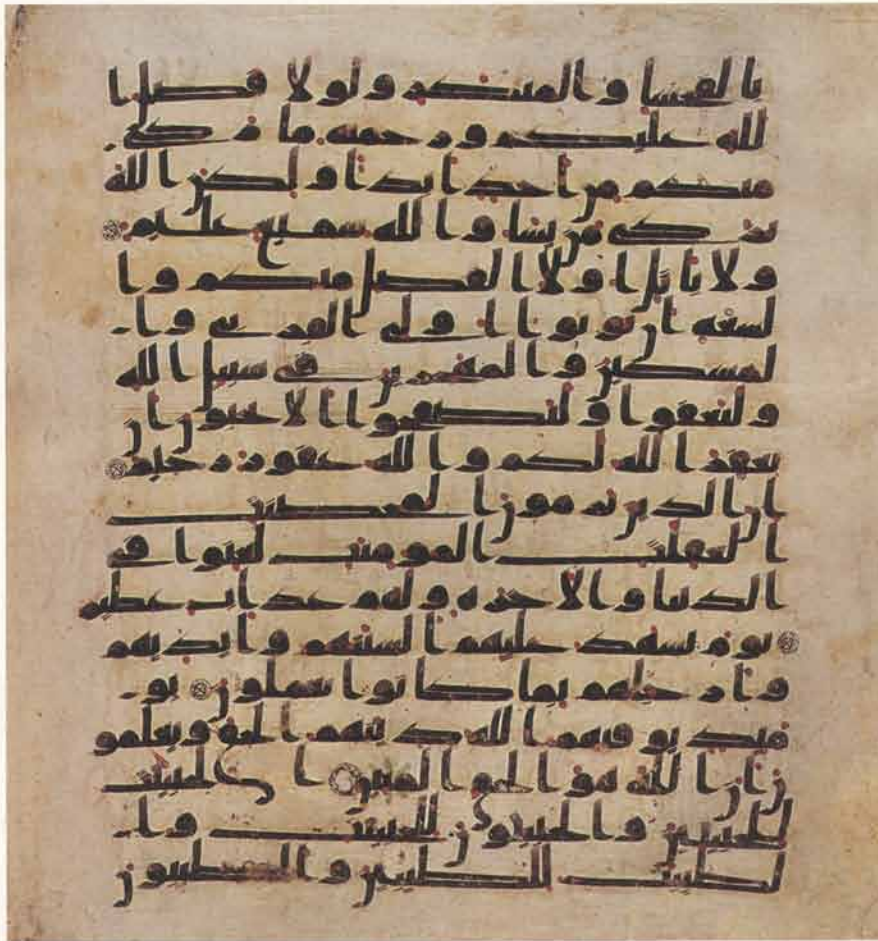 بالفحشا والمنكر ولولا فضل ا
لله عليكم ورحمته ما زكى
منكم من احد ابدا ولكن الله
يزكي من يشا والله سميع عليم
ولا ياتل اولوا الفضل منكم وا
لسعة ان يوتوا اولي القربى وا
لمسكين والمهجرين في سبيل الله
وليعفوا وليصفحوا الا تحبون ان
يغفر الله لكم والله غفور رحيم
ان الذين يرمون المحصنت
الغفلت المومنت لعنوا في
الدنيا والاخرة ولهم عذاب عظيم
يوم تشهد عليهم السنتهم وايديهم
وارجلهم بما كانوا يعملون يو
ميذ يوفيهم الله دينهم الحق ويعلمو
ن ان الله هو الحق المبين الخبيثت
للخبيثين والخبيثون للخبيثت وا
لطيبت للطيبين والطيبون